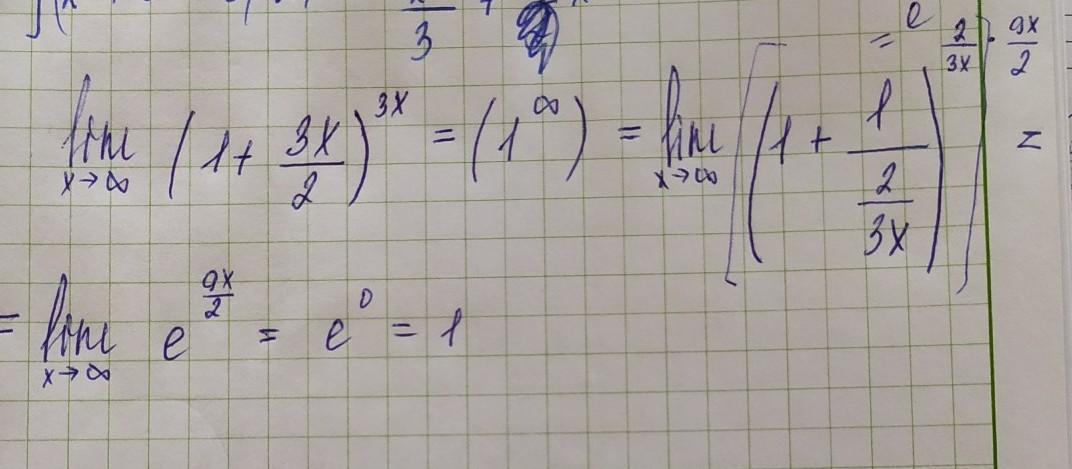 3
= e
lim x→∞ (1 + 3x/2)^3x = (1^∞) = lim x→∞ [(1 + 1/(2/3x))^2/3x]^9x/2 =
= lim x→∞ e^9x/2 = e^0 = 1